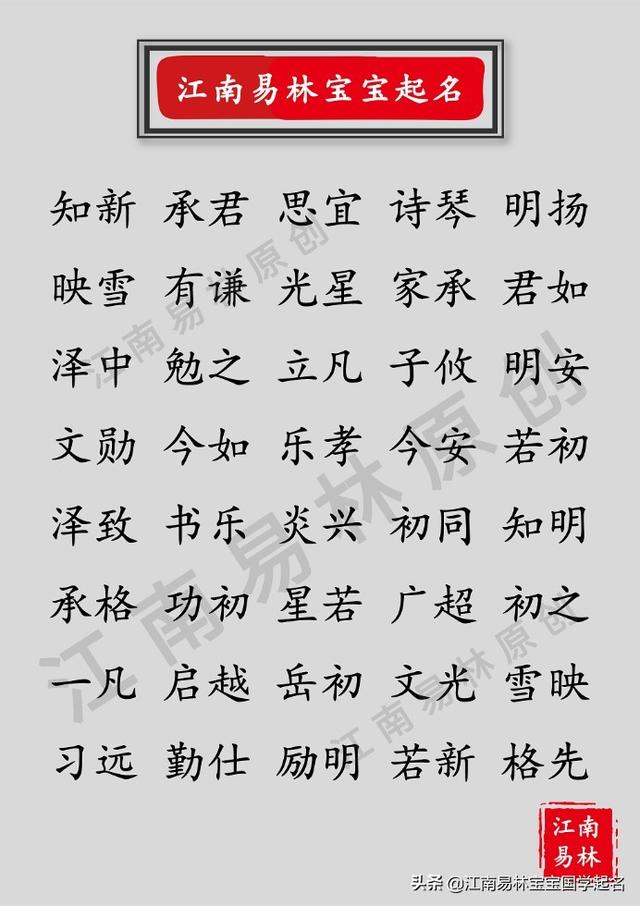 江南易林宝宝起名
知新 承君 思宜 诗琴 明扬
映雪 有谦 光星 家承 君如
泽中 勉之 立凡 子攸 明安
文勋 今如 乐孝 今安 若初
泽致 书乐 炎兴 初同 知明
承格 功初 星若 广超 初之
一凡 启越 岳初 文光 雪映
习远 勤仕 励明 若新 格先
江南易林原创
江南易林原创
江南易林原创
江南
易林
头条 @江南易林宝宝国学起名